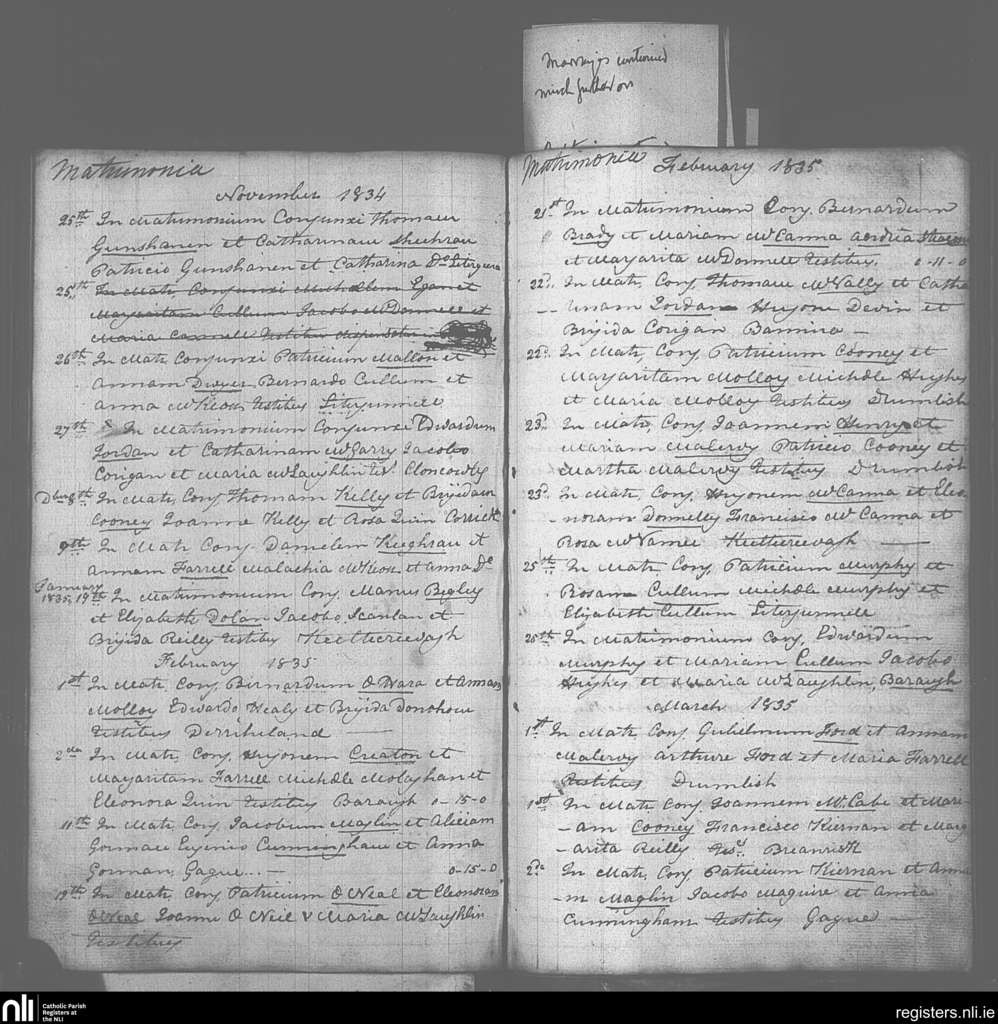 Marriages continued
much further on
Matrimonia
November 1834
25th In Matrimonium Conjunxi Thomam
Gunshanen et Catharinam Sheehran
Patricio Gunshanen et Catharina Do Literguera
25th In Mat. Conjunxi Michaelem Egan et
Margaritam Cullum Jacobo McDonnell et
Maria Testibus
26th In Mat. Conjunxi Patricium Mallon et
Annam Dwyer Bernardo Cullum et
Anna McKeon Testibus Literjunnell
27th In Matrimonium Conjunxi Edwardum
Jordan et Catharinam McGarry Jacobo
Corigan et Maria McLaughlin Tes. Cloncowly
8th In Mat. Conj. Thomam Kelly et Brijidam
Cooney Joanne Kelly et Rosa Quin Corrick
9th In Mat. Conj. Danielem Keeghran et
Annam Farrell Malachia McKeon et Anna Do
January
1835, 19th In Matrimonium Conj. Manus Begley
et Elizabeth Dolan Jacobo Scanlan et
Brijida Reilly Testibus Keethereevagh
February 1835
1st In Mat. Conj. Bernardum O Hara et Annam
Molloy Edwardo Healy et Brijida Donohow
Testibus Derriheland
2da In Mat. Conj. Hujonem Creaton et
Margaritam Farrell Michaele Mologhan et
Eleonora Quin Testibus Baraugh 0-15-0
11th In Mat. Conj. Jacobum Maglin et Aliciam
Gorman Eugenio Cunningham et Anna
Gorman, Gague... 0-15-0
19th In Mat. Conj. Patricium O Neal et Eleonoram
O Neal Joanne O Neil & Maria McLaughlin
Testibus
Matrimonia February 1835
21st In Matrimonium Conj. Bernardum
Brady et Mariam McCanna
et Margarita McDonnell Testibus. 0-11-0
22d. In Mat. Conj. Thomam McNally et Catha
-rinam Jordan Hujone Devin et
Brijida Corigan
22d. In Mat. Conj. Patricium Cooney et
Margaritam Molloy Michaele Hughes
et Maria Molloy Testibus Drumlish
23d. In Mat. Conj. Joannem Henry et
Mariam Maleroy Patricio Cooney et
Martha Maleroy Testibus Drumlish
23d. In Mat. Conj. Hujonem McCanna et Eleo
-noram Donnelly Francisco McCanna et
Rosa McNamee Keethereevagh
25th In Mat. Conj. Patricium Murphy et
Rosam Cullum Michaele Murphy et
Elizabeth Cullum Literjunnell
25th In Matrimonium Conj. Edwardum
Murphy et Mariam Cullum Jacobo
Hughes et Maria McLaughlin, Baraugh
March 1835
1st In Mat. Conj. Gulielmum Ford et Annam
Maleroy Arthure Ford et Maria Farrell
Testibus Drumlish
1st In Mat. Conj. Joannem McCabe et Mari
-am Cooney Francisco Kiernan et Marg
-arita Reilly Tes. Breanrisk
2da In Mat. Conj. Patricium Kiernan et Anna
-m Maglin Jacobo Maguire et Anna
Cunningham Testibus Gague
nli
Catholic Parish
Registers at
the NLI
registers.nli.ie